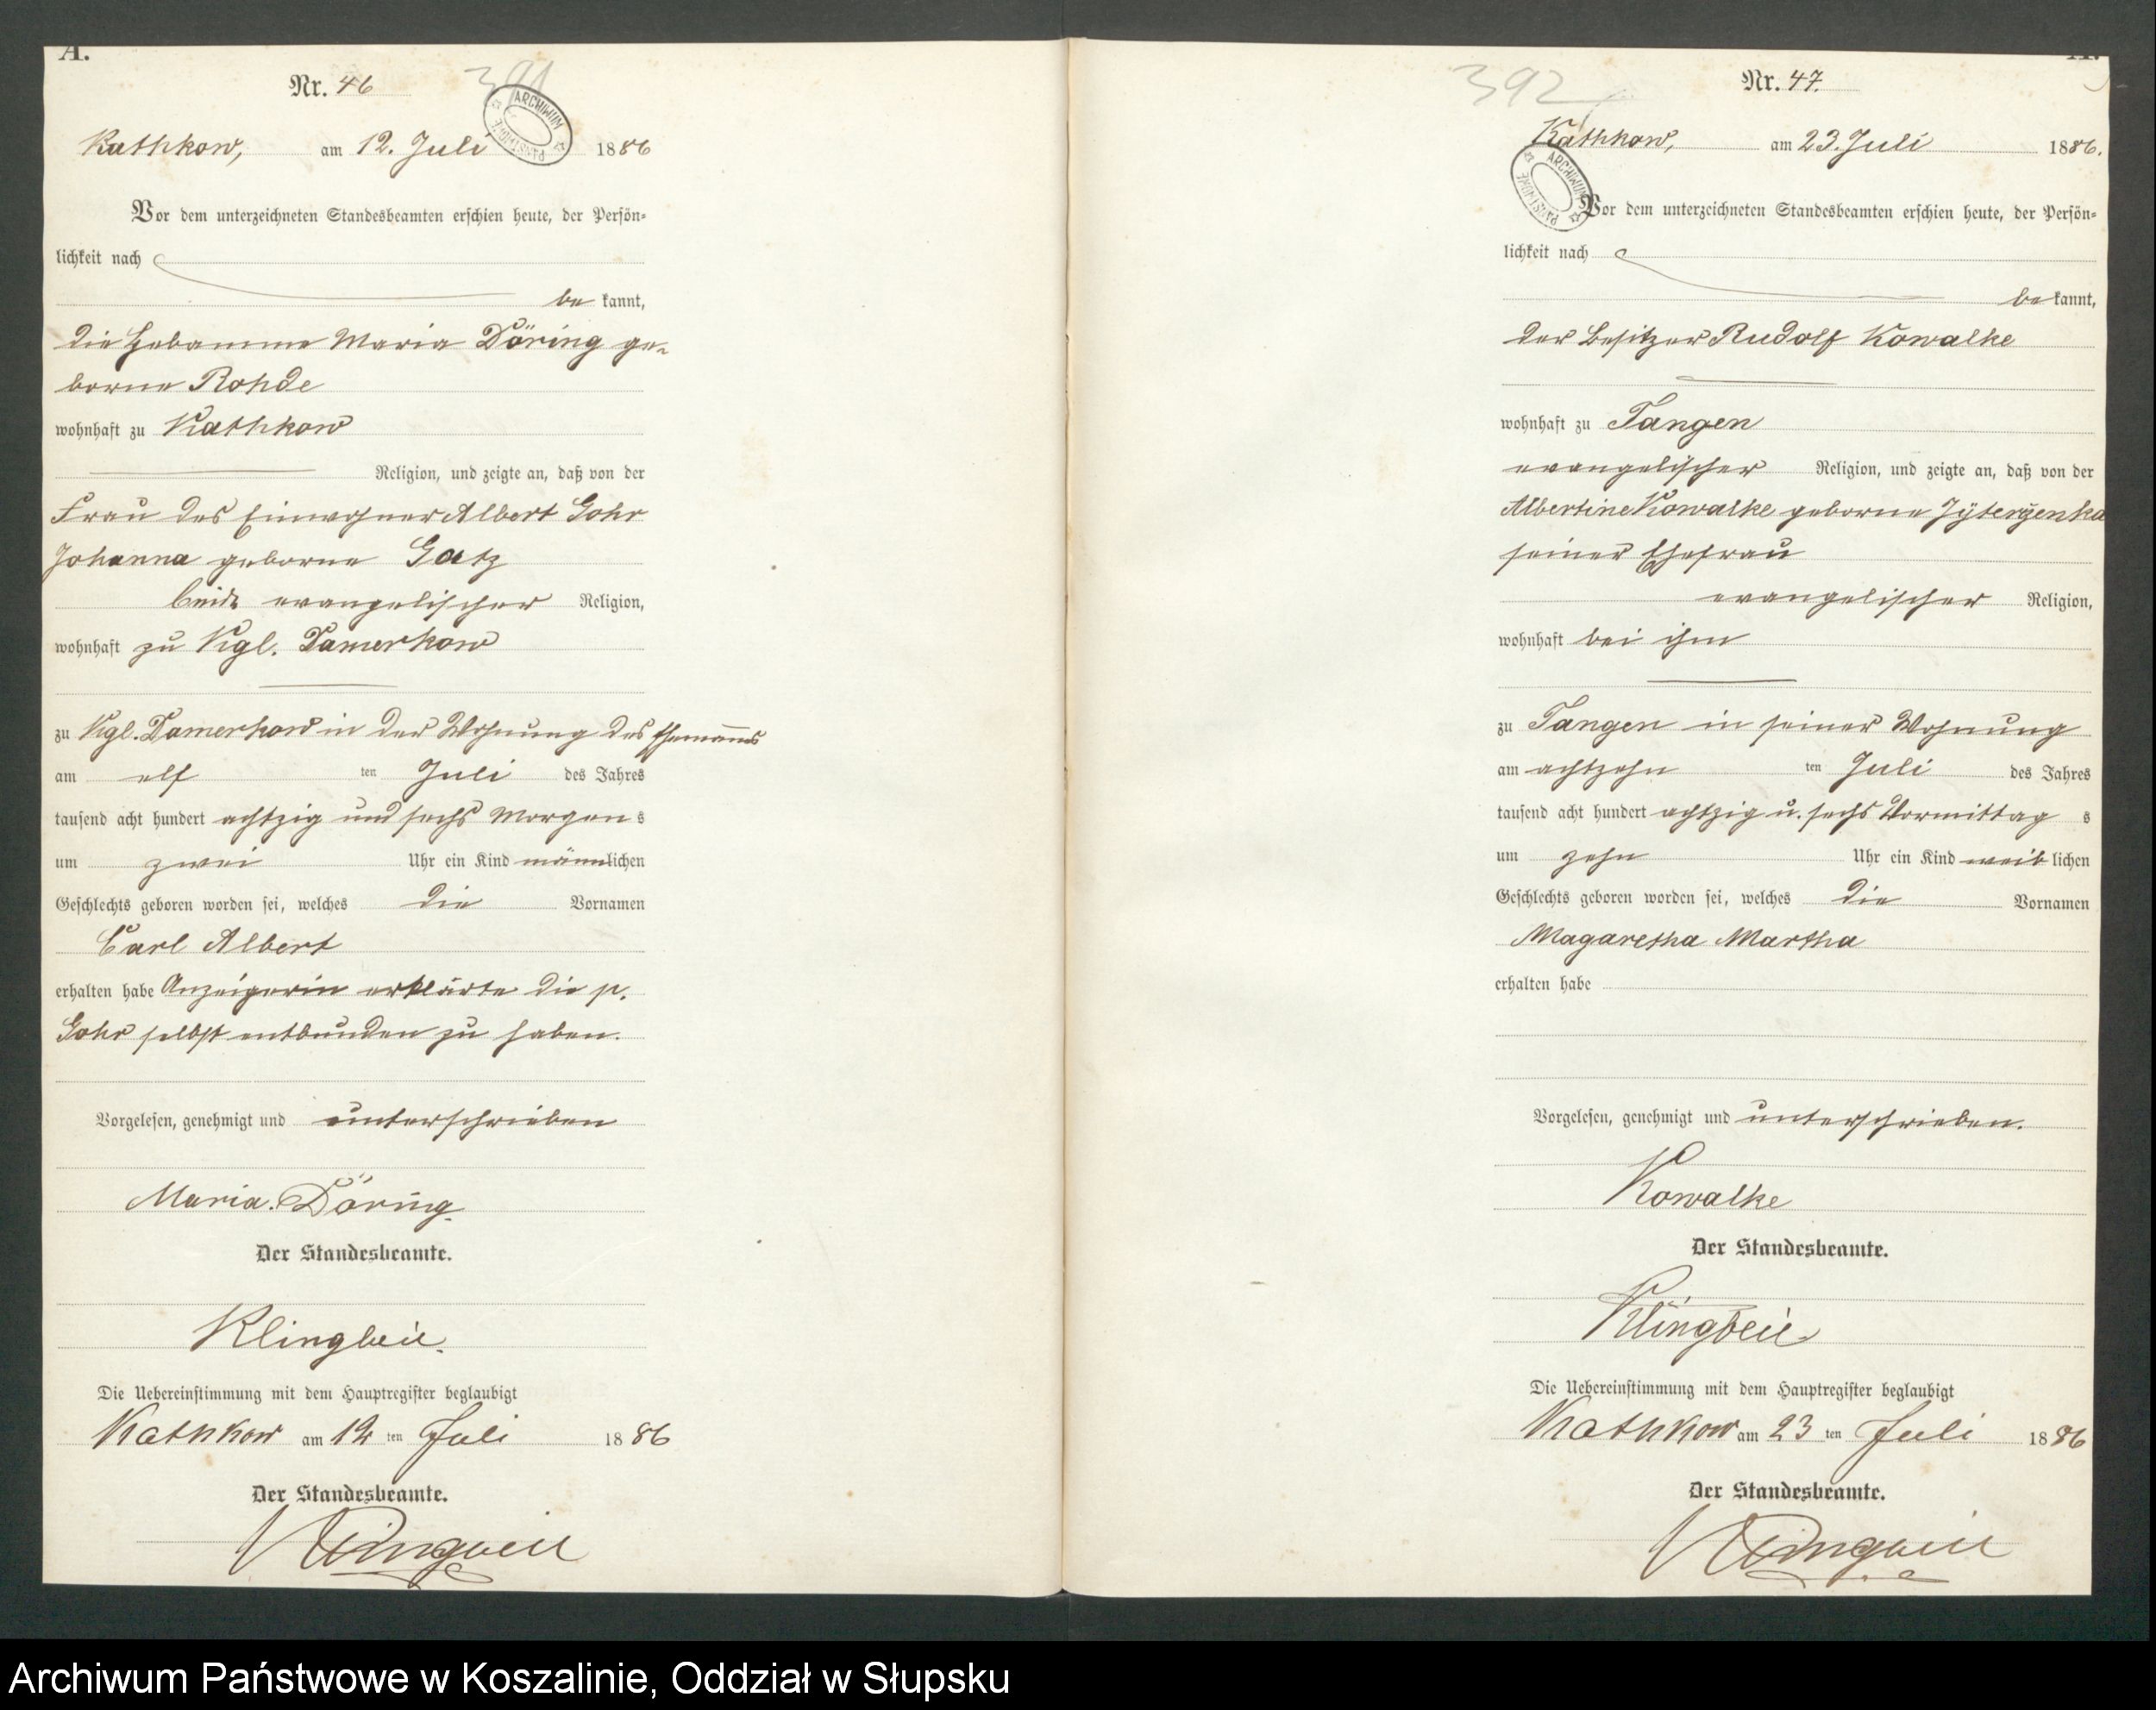 A.
Nr. 46
391
ARCHIWUM PAŃSTWOWE
Kathkow, am 12. Juli 1886
Vor dem unterzeichneten Standesbeamten erschien heute, der Persön-
lichkeit nach
be kannt,
die Hebamme Maria Döring ge-
borne Rohde
wohnhaft zu Kathkow
Religion, und zeigte an, daß von der
Frau des Einwohner Albert Gohr
Johanna geborne Gatz
beide evangelischer Religion,
wohnhaft zu Kgl. Damerkow
zu Kgl. Damerkow in der Wohnung des Ehemanns
am elf ten Juli des Jahres
tausend acht hundert achtzig und sechs Morgens
um zwei Uhr ein Kind männlichen
Geschlechts geboren worden sei, welches die Vornamen
Carl Albert
erhalten habe Anzeigerin erklärte die p.
Gohr selbst entbunden zu haben.
Vorgelesen, genehmigt und unterschrieben
Maria. Döring.
Der Standesbeamte.
Klingbeil.
Die Uebereinstimmung mit dem Hauptregister beglaubigt
Kathkow am 12 ten Juli 1886
Der Standesbeamte.
Klingbeil
392
Nr. 47.
Kathkow, am 23. Juli 1886.
ARCHIWUM PAŃSTWOWE
Vor dem unterzeichneten Standesbeamten erschien heute, der Persön-
lichkeit nach
be kannt,
der Besitzer Rudolf Kowalke
wohnhaft zu Tangen
evangelischer Religion, und zeigte an, daß von der
Albertine Kowalke geborne
seiner Ehefrau
evangelischer Religion,
wohnhaft bei ihm
zu Tangen in seiner Wohnung
am achtzehn ten Juli des Jahres
tausend acht hundert achtzig u. sechs Vormittag s
um zehn Uhr ein Kind weiblichen
Geschlechts geboren worden sei, welches die Vornamen
Magaretha Martha
erhalten habe
Vorgelesen, genehmigt und unterschrieben.
Kowalke
Der Standesbeamte.
Klingbeil
Die Uebereinstimmung mit dem Hauptregister beglaubigt
Kathkow am 23 ten Juli 1886
Der Standesbeamte.
Klingbeil
Archiwum Państwowe w Koszalinie, Oddział w Słupsku